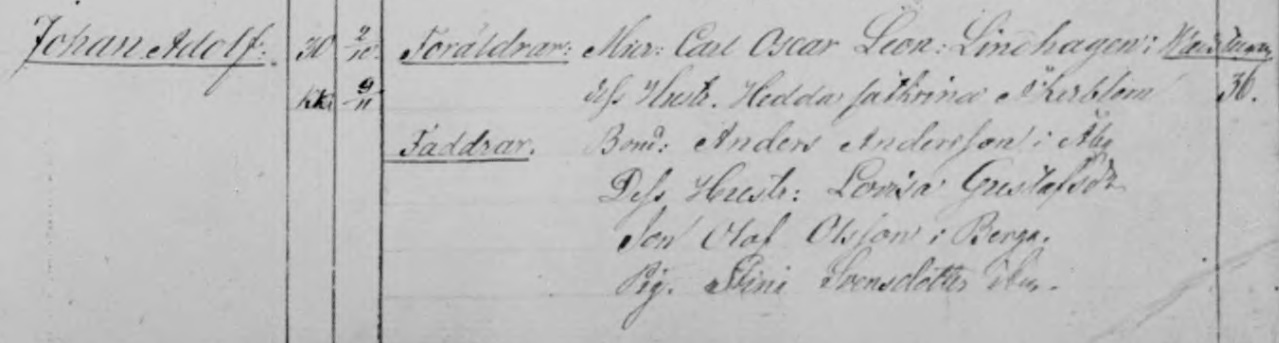 Johan Adolf. 30 2/10. Föräldrar: Mur: Carl Oscar Leon: Linehagen i
kka 9/11 dess Hustr. Hedda Cathrina Åkerblom 36.
Faddrar. Bond: Anders Andersson i Åby
Dess Hustr: Lovisa Gustafsdr
Son Olaf Olsson i Berga.
Pig. Stini Svensdotter